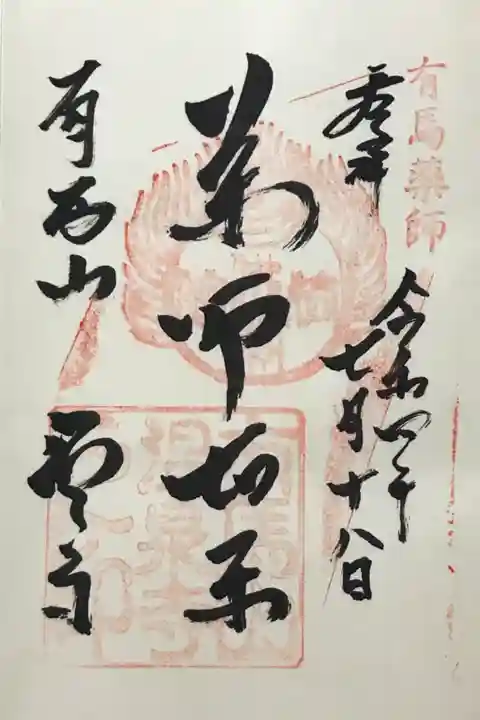 有馬薬師
奉拝
令和四年
七月十八日
薬師如来
有馬山
有馬山
温泉寺
之印